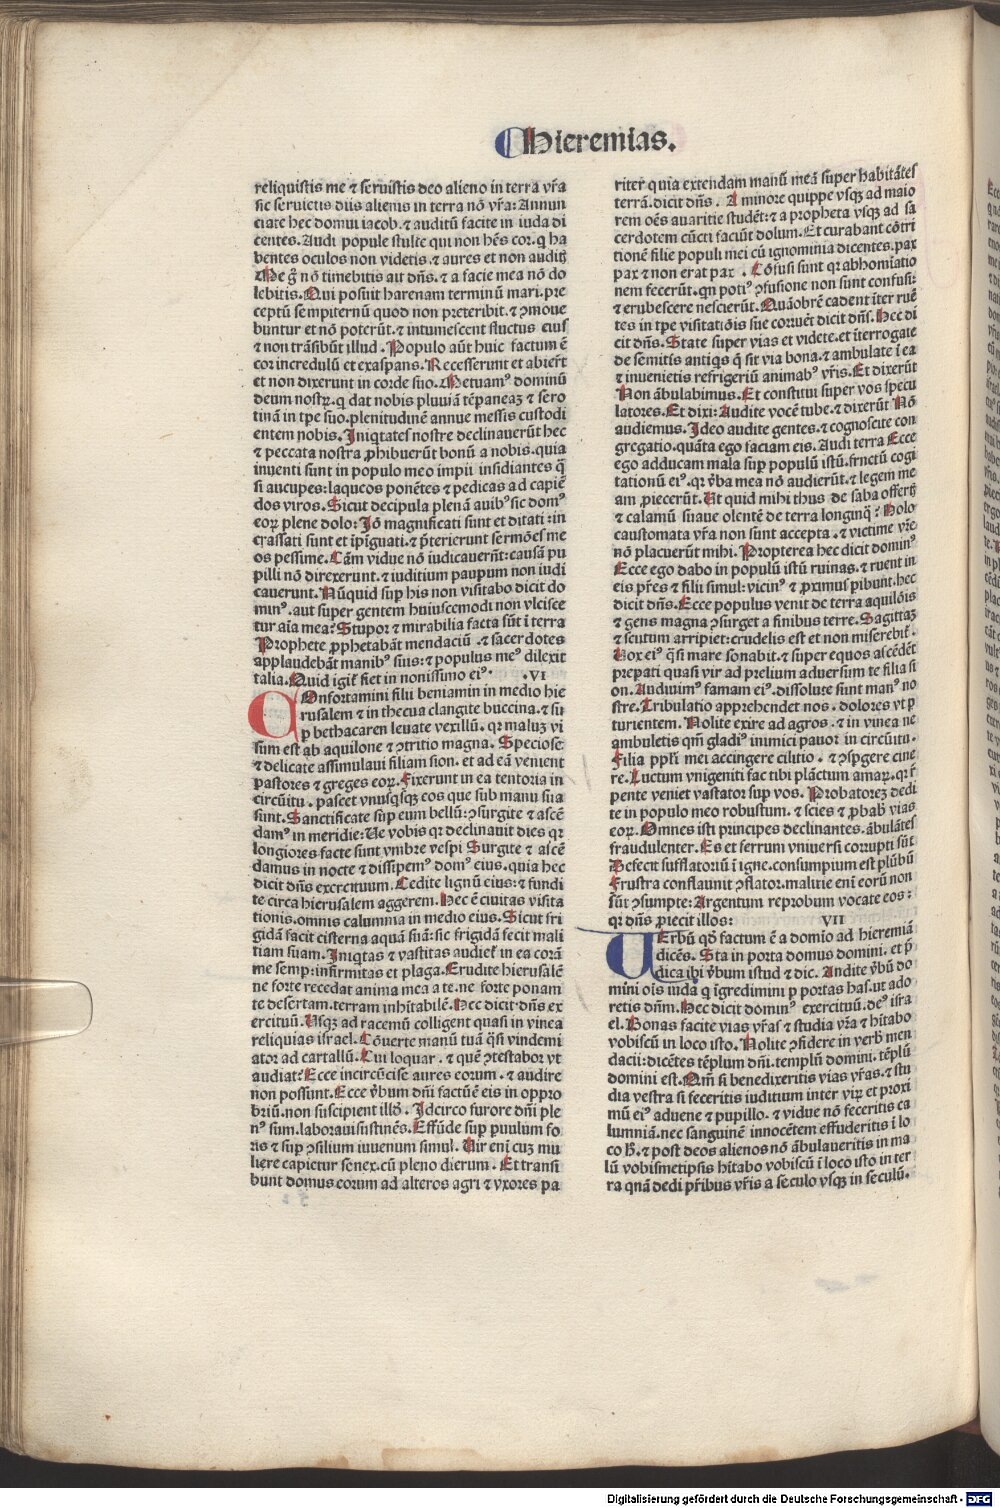 Hieremias.
reliquistis me ⁊ seruistis deo alieno in terra vr̄a
sic seruietis diis alienis in terra nō vr̄a: Annun
ciate hec domui iacob.⁊ auditū facite in iuda di
centes. Audi popule stulte qui non hēs cor. q ha
bentes oculos non videtis.⁊ aures et non auditꝭ
Me g̊ nō timebitis ait dn̄s.⁊ a facie mea nō do
lebitis. Qui posui harenam terminū mari.pre
ceptū sempiternū quod non preteribit.⁊ ꝯmoue
buntur et nō poterūt.⁊ intumescent fluctus eius
⁊ non trāsibūt illud. Populo aūt huic factum ē
cor incredulū et exaspans. Recesserunt et abierūt
et non dixerunt in corde suo. Metuamꝰ dominū
deum nostrꝝ. q dat nobis pluuiā tēpaneaꝫ ⁊ sero
tinā in tpe suo.plenitudinē annue messis custodi
entem nobis. Iniqtates nostre declinauerūt hec
⁊ peccata nostra ꝓhibuerūt bonū a nobis.quia
inuenti sunt in populo meo impii insidiantes q̄
si aucupes:laqueos ponētes ⁊ pedicas ad capiē
dos viros. Sicut decipula plenā auibꝰ sic domꝰ
eoꝝ plene dolo: Iō magnificati sunt et ditati:in
crassati sunt et īpīguati.⁊ p̄terierunt sermōes me
os pessime. Cām vidue nō iudicauerūt:causā pu
pilli nō direxerunt.⁊ iuditium paupum non iudi
cauerunt. Nūquid sup his non visitabo dicit do
minꝰ.aut super gentem huiuscemodi non vlcisce
tur aīa mea? Stupor ⁊ mirabilia facta sūt ī terra
Prophete ꝓphetabāt mendaciū .⁊ sacerdotes
applaudebāt manibꝰ suis:⁊ populus meꝰ dilexit
talia. Quid igit̄ fiet in nouissimo eiꝰ. .VI
Confortamini filii beniamin in medio hie
rusalem ⁊ in thecua clangite buccina.⁊ su
p bethacaren leuate vexillū. qr maluꝫ vi
sum est ab aquilone ⁊ ꝯtritio magna. Speciose
⁊ delicate assimulaui filiam sion. et ad eā venient
pastores ⁊ greges eoꝝ. Fixerunt in ea tentoria in
circūitu . pascet vnusqsqꝫ eos que sub manu sua
sunt. Sanctificate sup eum bellū:ꝯsurgite ⁊ ascē
damꝰ in meridie: Ue vobis qr declinauit dies qr
longiores facte sunt vmbre vespi Surgite ⁊ ascē
damus in nocte ⁊ dissipemꝰ domꝰ eius.quia hec
dicit dn̄s exercituum. Cedite lignū eius:⁊ fundi
te circa hierusalem aggerem. Hec ē ciuitas visita
tionis.omnis calumnia in medio eius. Sicut fri
gidā facit cisterna aquā suā:sic frigidā fecit mali
tiam suam. Iniqtas ⁊ vastitas audiet̄ in ea corā
me semp:infirmitas et plaga. Erudite hierusalē
ne forte recedat anima mea a te.ne forte ponam
te desertam.terram inhītabilē. Hec dicit dn̄s ex
ercituū. Usqꝫ ad racemū colligent quasi in vinea
reliquias israel. Cōuerte manū tuā q̄si vindemi
ator ad cartallū. Cui loquar . ⁊ quē ꝯtestabor vt
audiat? Ecce incircūcise aures eorum.⁊ audire
non possunt. Ecce v̄bum dn̄i factū ē eis in oppro
briū.non suscipient illḋ. Idcirco furore dn̄i ple
nꝰ sum.laboraui sustinēs. Effūde sup puulum fo
ris ⁊ sup ꝯsilium iuuenum simul. Uir eni cuꝫ mu
liere capietur senex.cū pleno dierum . Et transi
bunt domus eorum ad alteros agri ⁊ vxores pa
riter quia extendam manū meā super habitātes
terrā.dicit dn̄s. A minore quippe vsqꝫ ad maio
rem oēs auaritie studēt:⁊ a propheta vsqꝫ ad sa
cerdotem cūcti faciūt dolum. Et curabant cōtri
tionē filie populi mei cū ignominia dicentes.pax
pax ⁊ non erat pax . Cōfusi sunt qr abhomīatio
nem fecerūt. qn potiꝰ ꝯfusione non sunt confusi:
⁊ erubescere nescierūt. Quāobrē cadent īter ruē
tes in tpe visitatiōis sue corruēt dicit dn̄s. Hec di
cit dn̄s. State super vias et videte.et īterrogate
de semitis antiqs q̄ sit via bona.⁊ ambulate ī ea
⁊ inuenietis refrigeriū animabꝰ vr̄is. Et dixerūt
Non ābulabimus. Et constitui super vos specu
latores. Et dixi: Audite vocē tube.⁊ dixerūt Nō
audiemus. Ideo audite gentes.⁊ cognoscite con
gregatio.quāta ego faciam eis. Audi terra Ecce
ego adducam mala sup populū istū.fructū cogi
tationū eiꝰ. qr v̄ba mea nō audierūt.⁊ legem me
am ꝓiecerūt. Ut quid mihi thus de saba offertꝭ
⁊ calamū suaue olentē de terra longinq̄? Holo
caustomata vr̄a non sunt accepta . ⁊ victime vr̄e
nō placuerūt mihi. Propterea hec dicit dominꝰ
Ecce ego dabo in populū istū ruinas.⁊ ruent in
eis pr̄es ⁊ filii simul:vicinꝰ ⁊ ꝓximus pibunt.hec
dicit dn̄s. Ecce populus venit de terra aquilōis
⁊ gens magna ꝯsurget a finibus terre. Sagittaꝫ
⁊ scutum arripiet:crudelis est et non miserebit̄.
Uox eiꝰ q̄si mare sonabit.⁊ super equos ascēdēt
prepati quasi vir ad prelium aduersum te filia si
on. Audiuimꝰ famam eiꝰ.dissolute sunt manꝰ no
stre. Tribulatio apprehendet nos. dolores vt p
turientem. Nolite exire ad agros . ⁊ in vinea ne
ambuletis qm̄ gladiꝰ inimici pauor in circūitu.
Filia ppl̄i mei accingere cilitio . ⁊ ꝯspgere cine
re. Luctum vnigeniti fac tibi plāctum amaꝝ. qr r̄
pente veniet vastator sup vos. Probatoreꝫ dedi
te in populo meo robustum.⁊ scies ⁊ ꝓbab̄ vias
eoꝝ. Omnes isti principes declinantes.ābulātes
fraudulenter. Es et ferrum vniuersi corrupti sūt
Defecit sufflatoriū ī igne.consumptum est plūbū
Frustra conflauit ꝯflator.malitie enī eorū non
sūt ꝯsumpte: Argentum reprobum vocate eos:
qr dn̄s ꝓiecit illos: VII
Uerbū qḋ factum ē a domino ad hieremiā
dicēs. Sta in porta domus domini. et p̄
dica ibi v̄bum istud ⁊ dic. Audite v̄bū do
mini oīs iuda q īgredimini p portas has.ut ado
retis dn̄m. Hec dicit dominꝰ exercituū.deꝰ isra
el. Bonas facite vias vr̄as ⁊ studia vr̄a ⁊ hītabo
vobiscū in loco isto. Nolite ꝯfidere in verb̄ men
dacii:dicētes tēplum dn̄i.templū domini.tēplū
domini est. Qm̄ si benedixeritis vias vr̄as.⁊ stu
dia vestra si feceritis iuditium inter viꝝ et proxi
mū eiꝰ aduene ⁊ pupillo.⁊ vidue nō feceritis ca
lumniā.nec sanguinē innocētem effuderitis ī lo
co h̄.⁊ post deos alienos nō ābulaueritis in ma
lū vobismetipsis hītabo vobiscū ī loco isto in ter
ra quā dedi pr̄ibus vr̄is a seculo vsqꝫ in seculū.
Digitalisierung gefördert durch die Deutsche Forschungsgemeinschaft - DFG